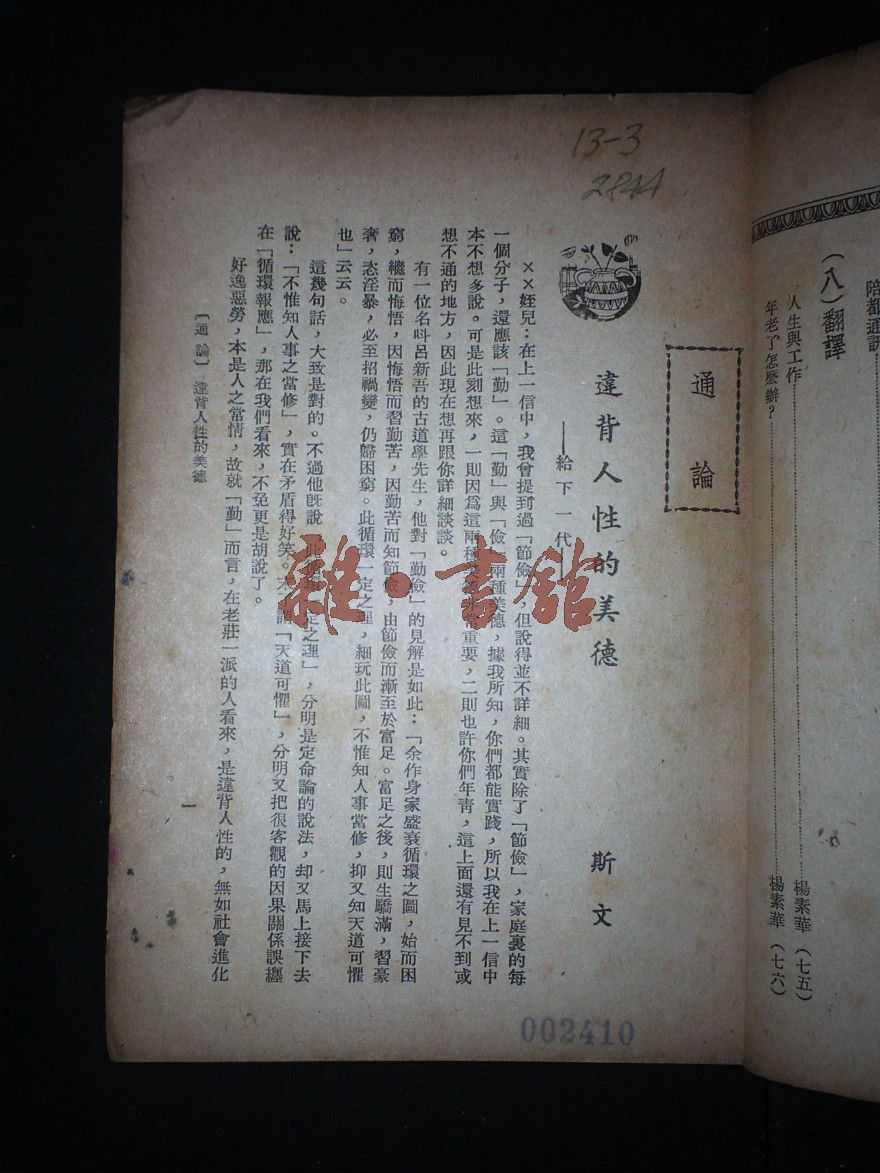 陪都通訊
(八)翻譯
人生與工作 楊素華(七五)
年老了怎麽辦? 楊素華(七六)
13-3
2844
通論
違背人性的美德 斯文
——給下一代
××姪兒:在上一信中,我曾提到過「節儉」,但說得並不詳細。其實除了「節儉」,家庭裏的每
一個分子,還應該「勤」。這「勤」與「儉」兩種美德,據我所知,你們都能實踐,所以我在上一信中
本不想多說。可是此刻想來,一則因爲這兩種重要,二則也許你們年青,這上面還有見不到或
想不通的地方,因此現在想再跟你詳細談談。
有一位名呌呂新吾的古道學先生,他對「勤儉」的見解是如此:「余作身家盛衰循環之圖,始而困
窮,繼而悔悟,因悔悟而習勤苦,因勤苦而知節儉,由節儉而漸至於富足。富足之後,則生驕滿,習豪
奢,恣淫暴,必至招禍變,仍歸困窮。此循環一定之理,細玩此圖,不惟知人事當修,抑又知天道可懼
也」云云。
這幾句話,大致是對的。不過他旣說「此循環一定之理」,分明是定命論的說法,却又馬上接下去
說:「不惟知人事之當修」,實在矛盾得好笑。末謂「天道可懼」,分明又把很客觀的因果關係誤纏
在「循環報應」,那在我們看來,不免更是胡說了。
好逸惡勞,本是人之常情,故就「勤」而言,在老莊一派的人看來,是違背人性的,無如社會進化
〔通論〕違背人性的美德
一
002410
雜·書館